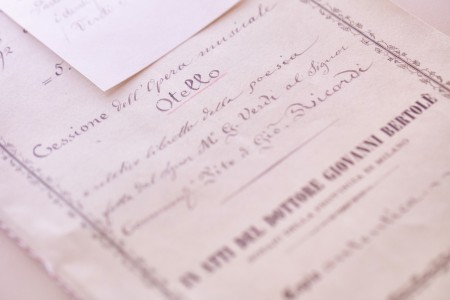 (Verdi
= 5
Cessione dell'Opera musicale
Otello
e relativo libretto della poesia
fatta dal Signor M.º G. Verdi al Signor
Commend. Tito di Gio. Ricordi
IN ATTI DEL DOTTORE GIOVANNI BERTOLÈ
NOTAIO DELLA PROVINCIA DI MILANO
Copia